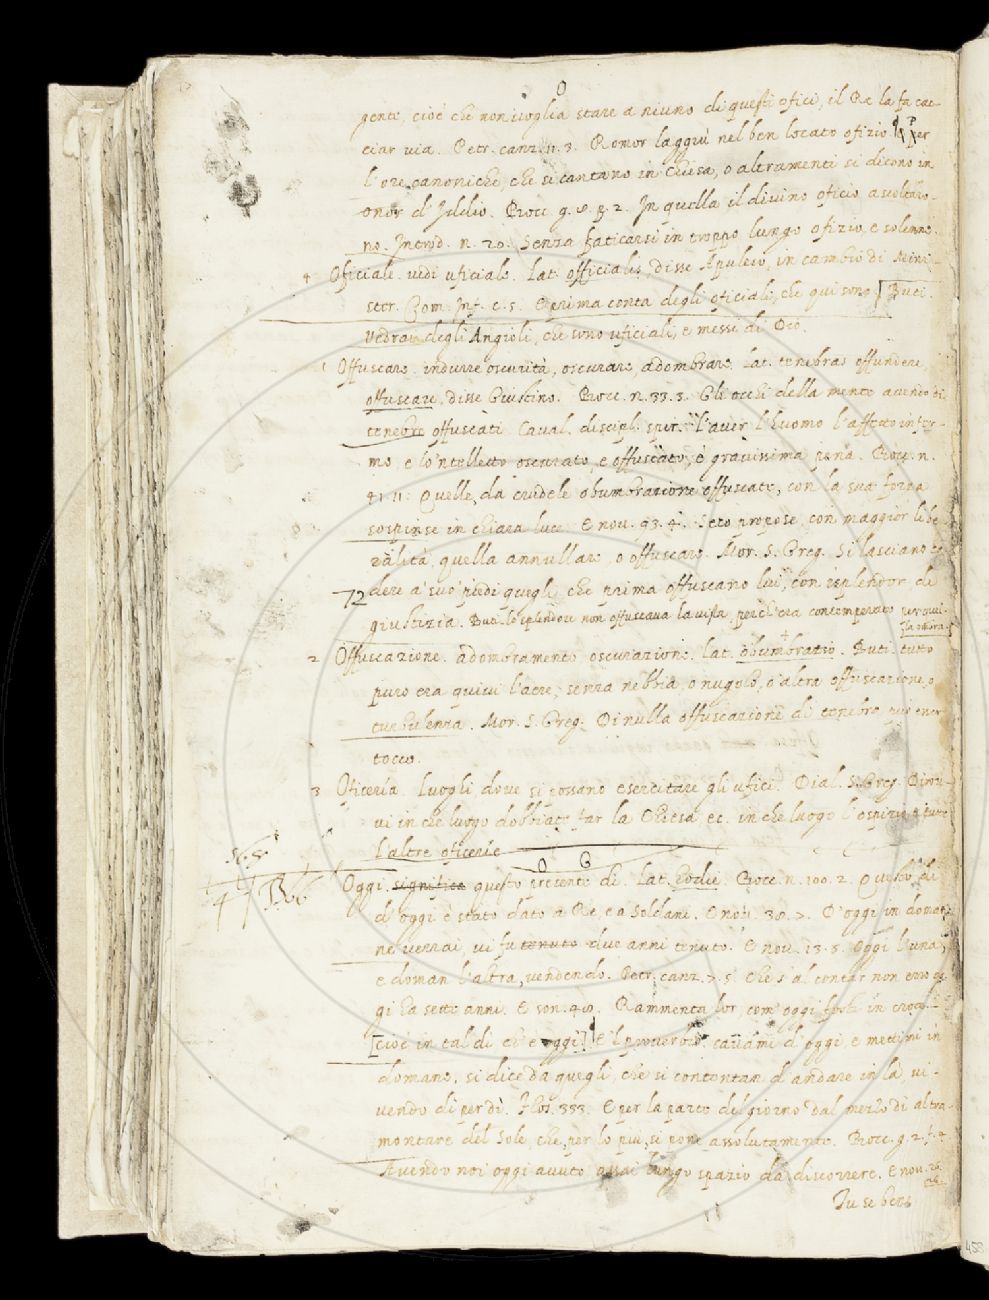 O
gente, cioè che non voglia stare a niuno di questi ofici, il Re la fa cac-
ciar via. Petr. canz. 11. 3. Romor laggiù nel ben locato ofizio Per
l'ore canoniche, che si cantano in Chiesa, o altramenti si dicono in
onor d'Iddio. Bocc. g. 8. p. 2. In quella il divino oficio ascoltaro-
no. Introd. n. 20. Senza faticarsi in troppo lungo ofizio, e solenne.
4 Oficiale. vedi uficiale. Lat. officialis, disse Apuleio, in cambio di Mini-
ster. Com. Inf. c. 5. E prima conta degli oficiali, che qui sono [Buti.
Vedrai degli Angioli, che sono uficiali, e messi di Dio.
1 Offuscare. indurre oscurità, oscurare, adombrare. Lat. tenebras offundere,
offuscare, disse Giustino. Bocc. n. 33. 3. Gli occhi della mente avendo di
tenebre offuscati. Caval. discipl. spir. L'aver l'huomo l'affetto infer-
mo, e lo 'ntelletto oscurato, e offuscato, è gravissima pena. Bocc. n.
41. 11. Quelle, da crudele obumbrazione offuscate, con la sua forza
sospinse in chiara luce. E nov. 93. 4. Seco propose, con maggior libe-
ralità, quella annullare, o offuscare. Mor. S. Greg. Si lasciano
72 dere a' suo' piedi quegli, che prima offuscano lui, con isplendor di
giustizia. But. lo splendore non offuscava la vista, perch'era contemperato per
la ombra.
2 Offuscazione. adombramento oscurazione. Lat. obumbratio. Buti. tutto
puro era quivi l'aere, senza nebbia, o nugolo, o altra offuscazione, o
turbulenza. Mor. S. Greg. Di nulla offuscazione di tenebre
tocco.
3 Oficeria. Luogli dove si possano esercitare gli ufici. Dial. S. Greg.
vi in che luogo dobbiate far la Chiesa ec. in che luogo l'ospizio e tutte
l'altre oficerie
O G
Oggi. significa questo presente dì. Lat. hodie. Bocc. n. 100. 2. Questo dì
d'oggi è stato dato a Re, e a Soldani. E nov. 30. 7. D'oggi in domat-
ne verrai, vi fu tenuto due anni tenuto. E nov. 13. 5. Oggi l'una,
e doman l'altra, vendendo. Petr. canz. 7. 5. Che s'al contar non erro og-
gi ha sette anni. E son. 48. Rammenta lor, com'oggi fosti in croce.
[cioè in tal dì ch'è oggi] E 'l proverbio. cavami d'oggi, e mettimi in
domane, si dice da quegli, che si contentan d'andare in là, vi-
vendo dì per dì. Flos. 353. E per la parte del giorno dal mezzo dì al tra-
montare del Sole, che, per lo più, si pone assolutamente. Bocc. g. 2. f. 4.
Avendo noi oggi avuto assai lungo spazio da discorrere. E nov. 20
Tu se ben
458